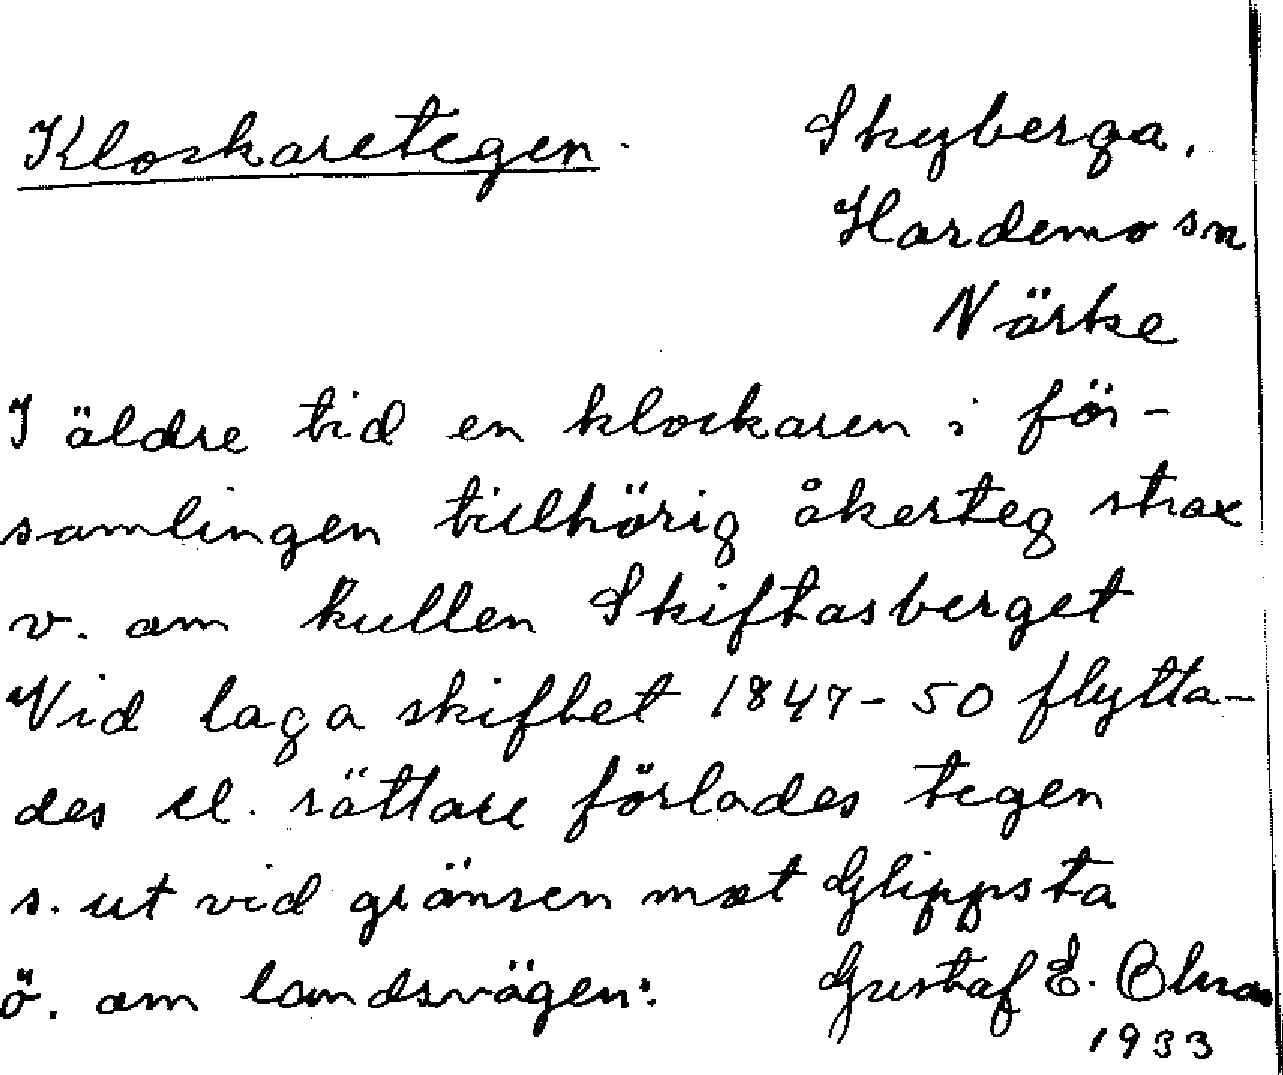 Klockaretegen. Skyberga.
Hardemo sn
Närke
I äldre tid en klockaren i för-
samlingen tillhörig åkerteg strax
v. om kullen Skiftasberget
Vid laga skiftet 1847-50 flytta-
des el. rättare förlades tegen
s. ut vid gränsen mot Glippsta
ö. om landsvägen.
Gustaf E.
1933